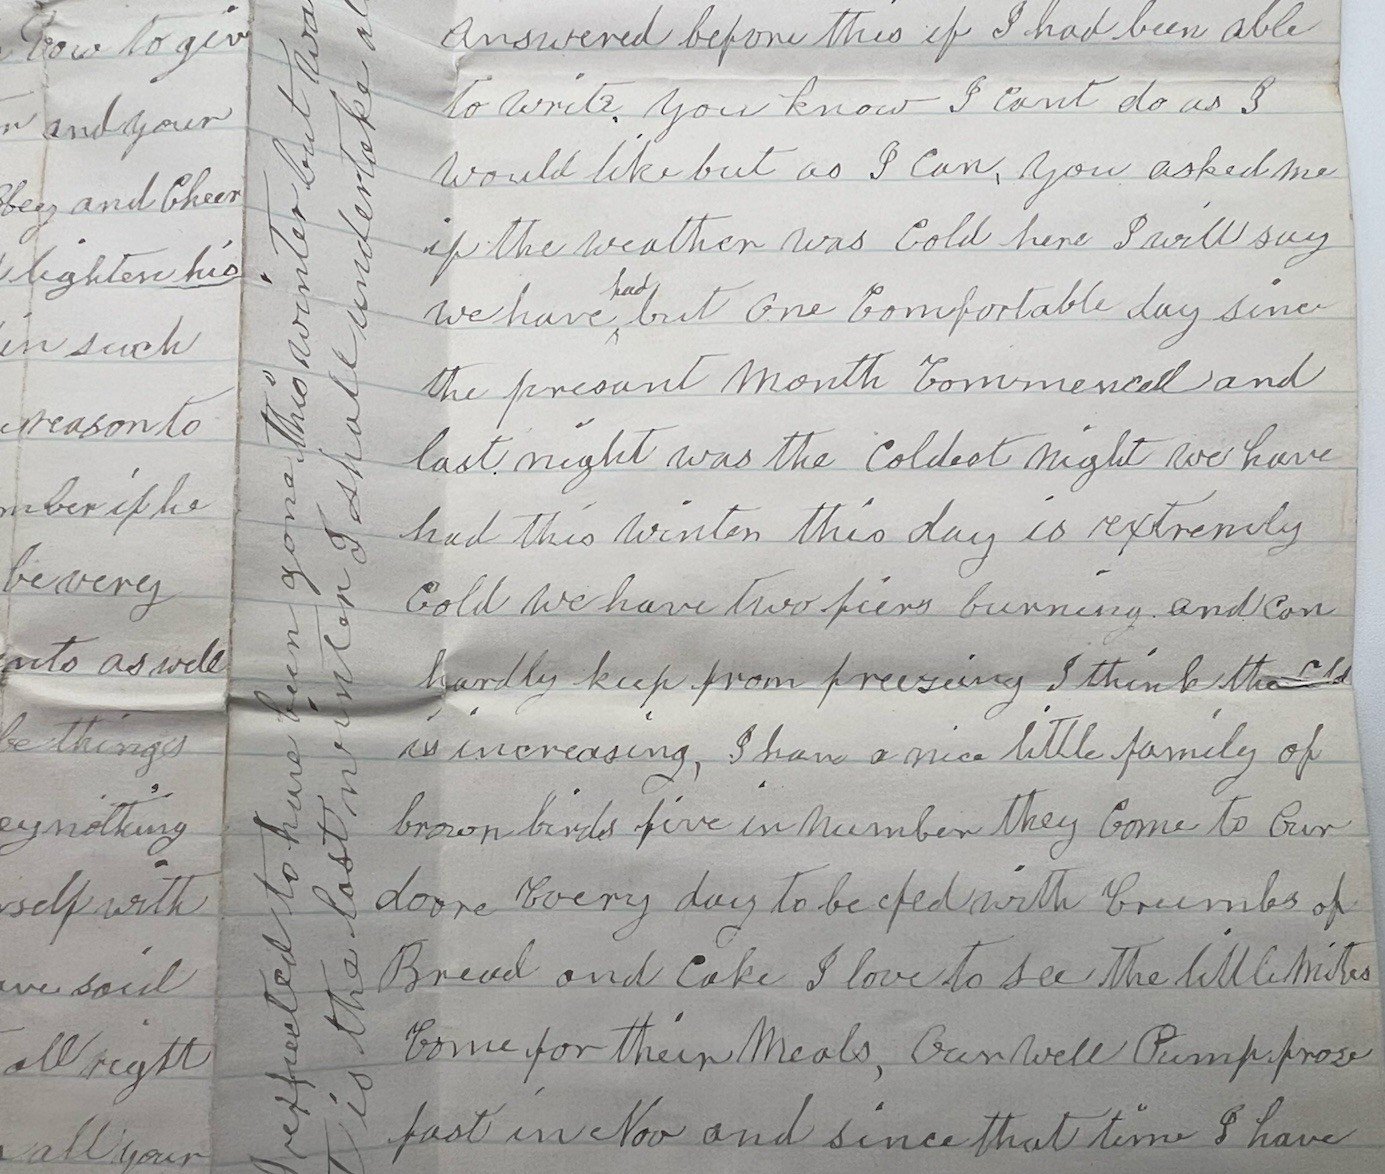 how to giv
and your
and Cheer
lighten his
in such
reason to
if he
be very
as well
be things
nothing
self with
said
all right
all your
I expected to have been gone this winter but
is the last winter I shall undertake
answered before this if I had been able
to write, you know I cant do as I
would like but as I can, you asked me
if the weather was Cold here I will say
we have had but one Comfortable day since
the presant Month Commenced and
last night was the Coldest night we have
had this Winter this day is extremly
Cold we have two fiers burning and can
hardly keep from freezeing I think the cld
is increasing, I have a nice little family of
brown birds five in number they Come to Our
doore Every day to be fed with Crumbs of
Bread and Cake I love to see the little Mites
Come for their Meals, Our well Pump froze
fast in Nov and since that time I have